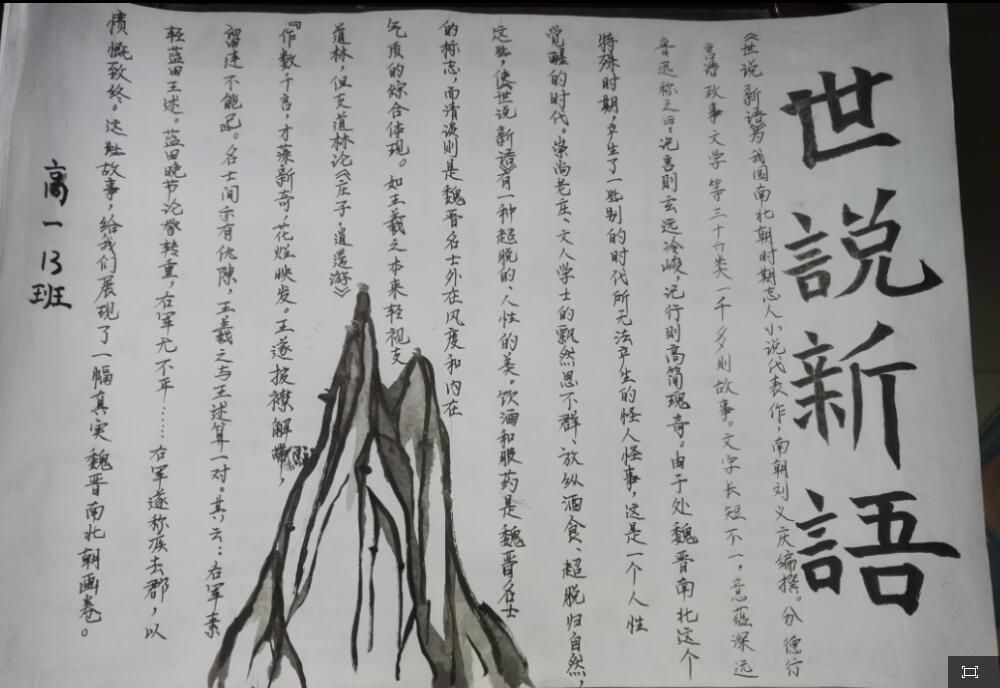 世說新語
《世说新语》为我国南北朝时期志人小说代表作，南朝刘义庆编撰。分德行
言语政事文学等三十六类一千多则故事。文字长短不一，意蕴深远
鲁迅称之曰：记言则玄远冷峻，记行则高简瑰奇。由于处魏晋南北这个
特殊时期，产生了一些别的时代所无法产生的怪人怪事，这是一个人性
觉醒的时代。崇尚老庄、文人学士的飘然思不群、放纵酒食、超脱归自然，
这些，使《世说新语》有一种超脱的、人性的美。饮酒和服药是魏晋名士
的标志，而清谈则是魏晋名士外在风度和内在
气质的综合体现。如王羲之本来轻视支
道林，但支道林论《庄子·逍遥游》
『作数千言，才藻新奇，花烂映发。王遂披襟解
留连不能已。名士间亦有仇隙，王羲之与王述算一对。其云：右军素
轻蓝田王述。蓝田晚节论誉转重，右军尤不平……右军遂称疾去郡，以
愤慨致终。这些故事，给我们展现了一幅真实魏晋南北朝画卷。
高一13班